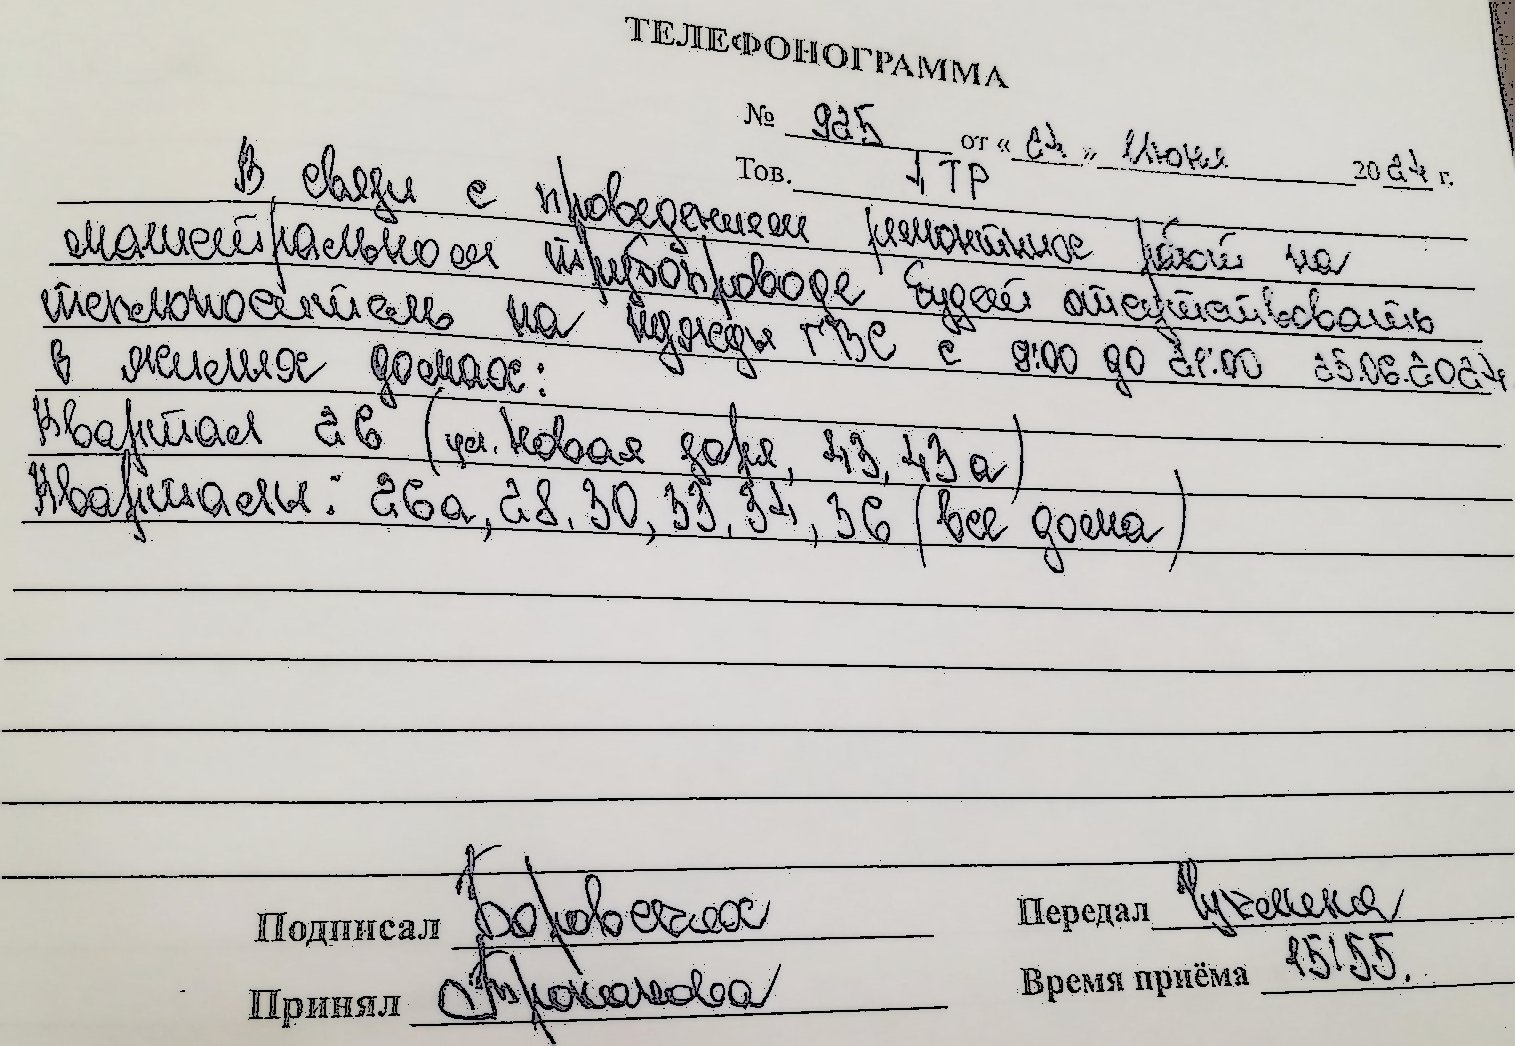 ТЕЛЕФОНОГРАММА
№ 925 от « 24 » Июня 2024 г.
Тов. ТР
В связи с проведением ремонтных работ на
магистральном трубопроводе будет отсутствовать
теплоноситель на нужды ГВС с 9:00 до 21:00 25.06.2024
в жилых домах:
Квартал 26 (ул. Новая заря, 43, 43 а)
Кварталы: 26а, 28, 30, 33, 34, 36 (все дома)
Подписал Боровских
Передал
Принял
Время приёма 15:55.